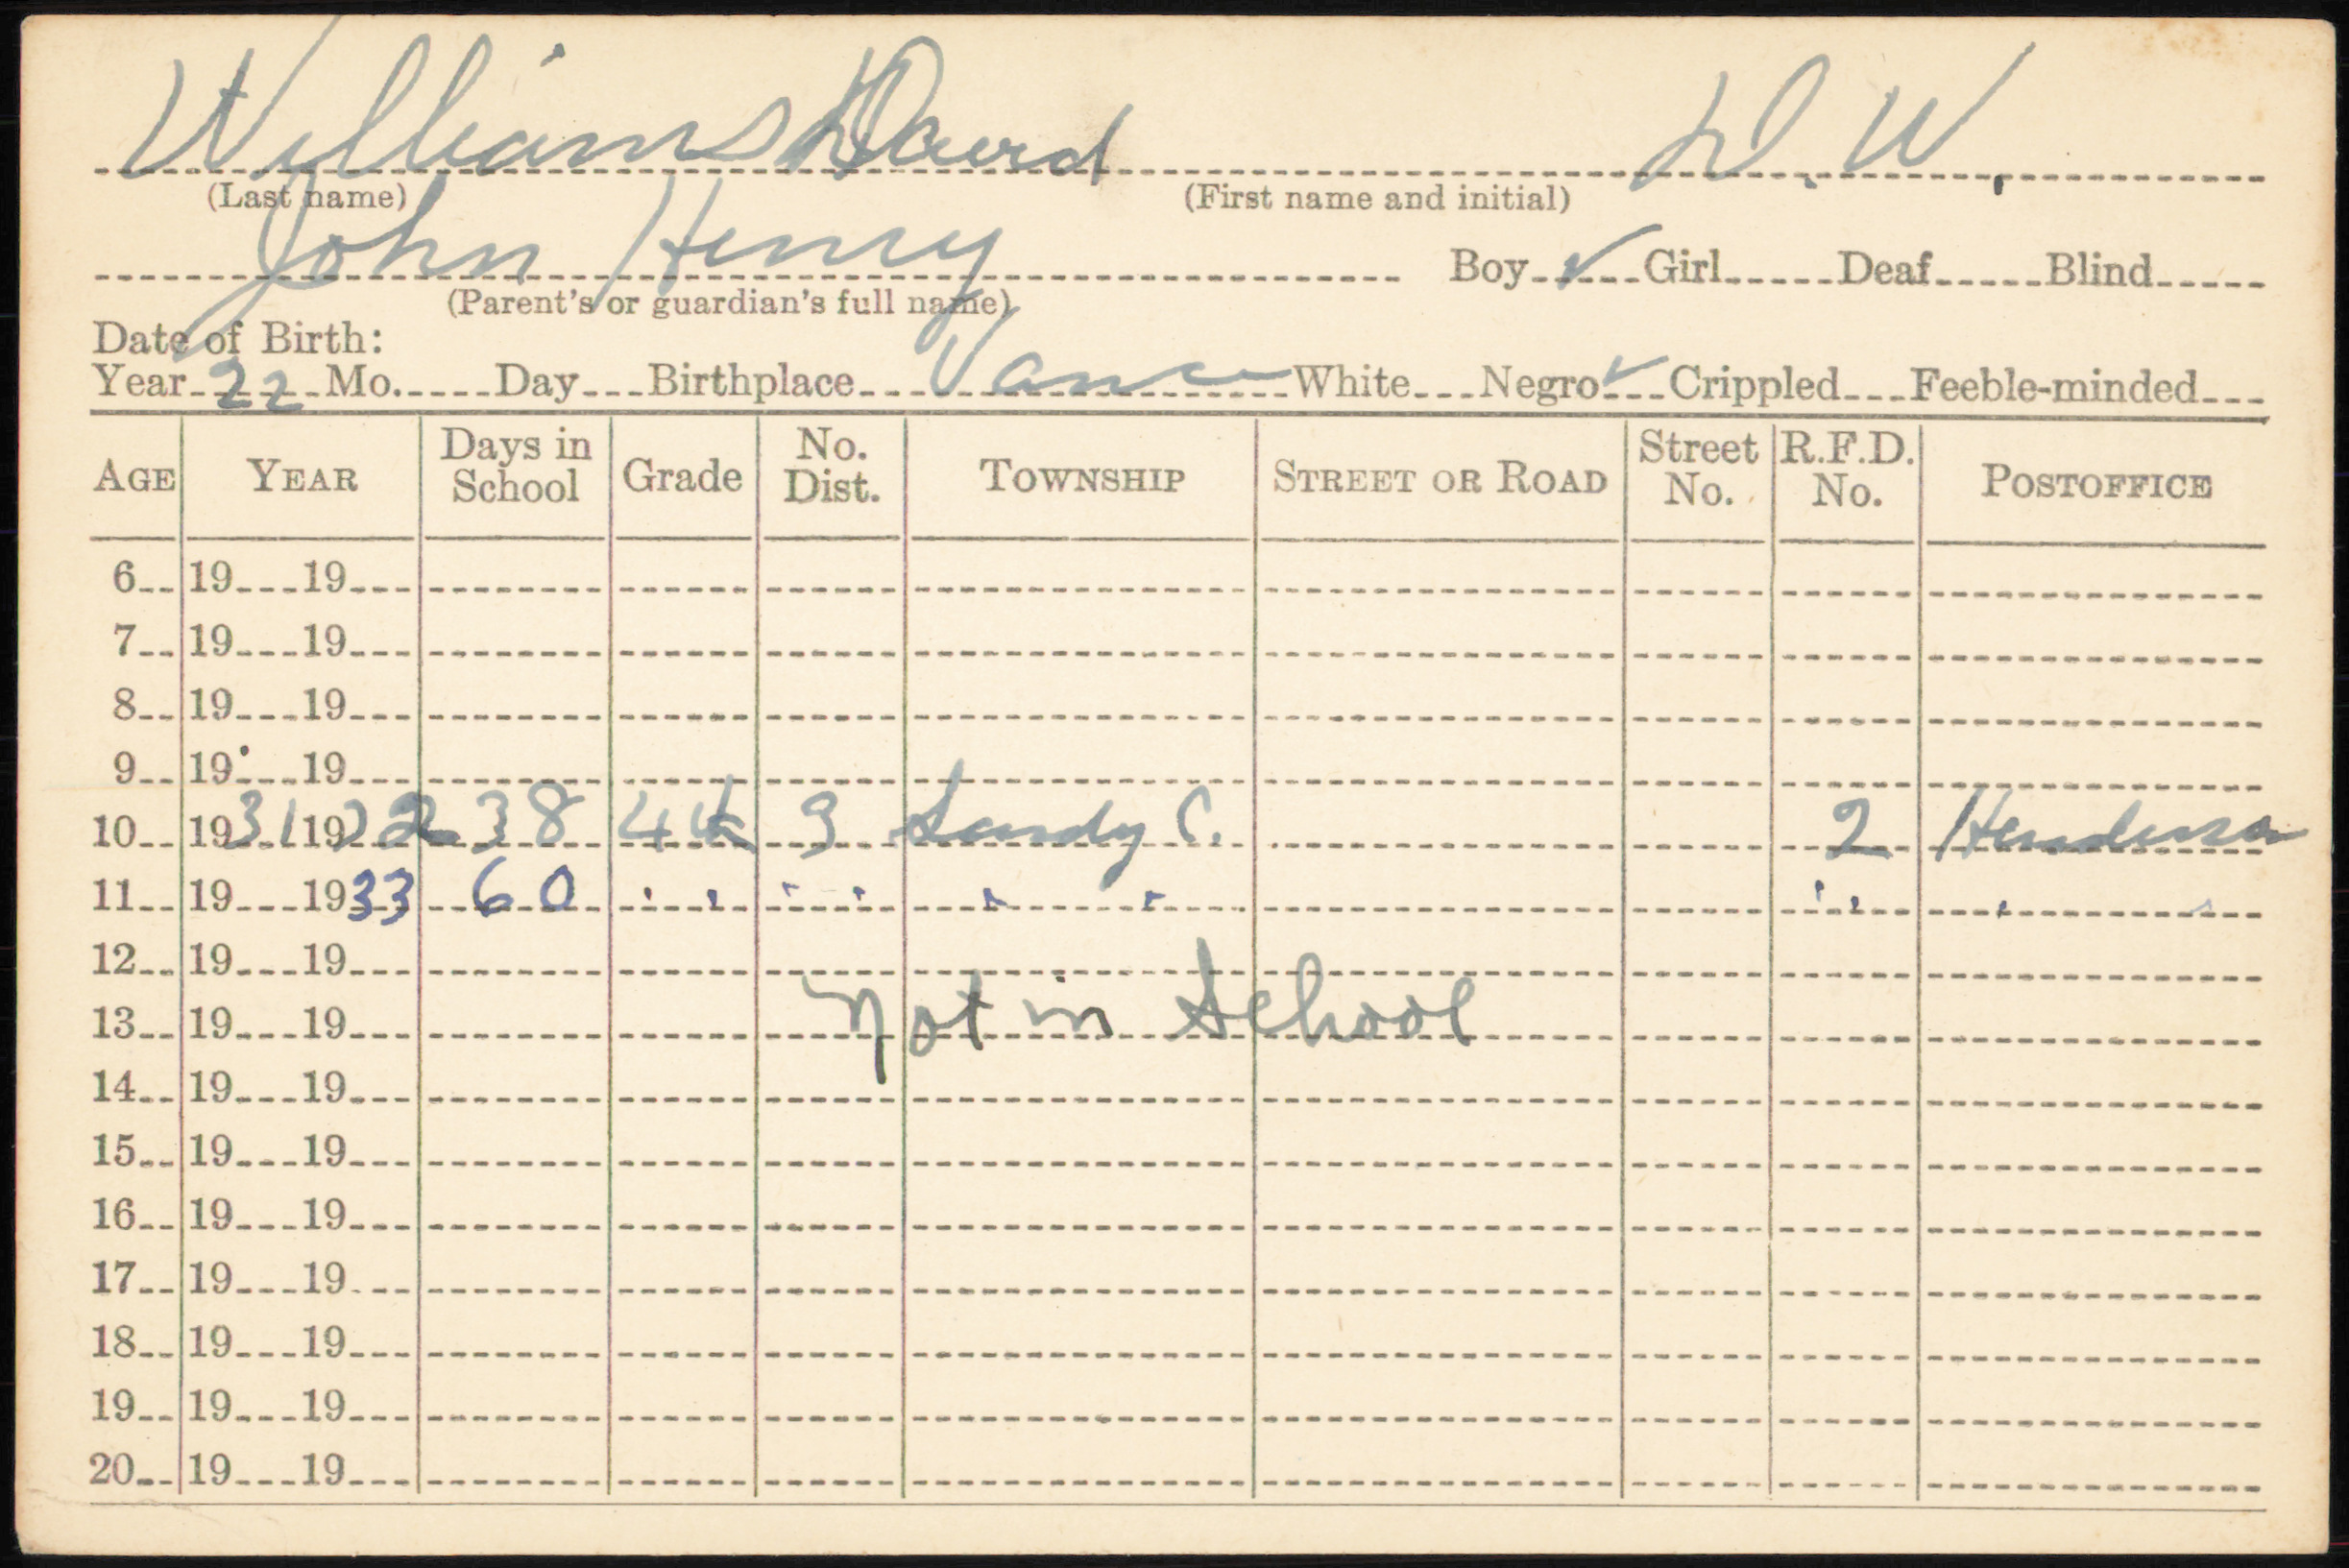 Williams David D. W.
(Last name) (First name and initial)
John Henry Boy ✓ Girl Deaf Blind
(Parent's or guardian's full name)
Date of Birth:
Year 22 Mo. Day Birthplace Vance White Negro ✓ Crippled Feeble-minded
AGE YEAR Days in School Grade No. Dist. TOWNSHIP STREET OR ROAD Street No. R.F.D. No. POSTOFFICE
6 19 19
7 19 19
8 19 19
9 19 19
10 1931 19 32 38 4 3 Sandy C. 2 Henderson
11 19 1933 60 " " " " "
12 19 19
Not in School
13 19 19
14 19 19
15 19 19
16 19 19
17 19 19
18 19 19
19 19 19
20 19 19